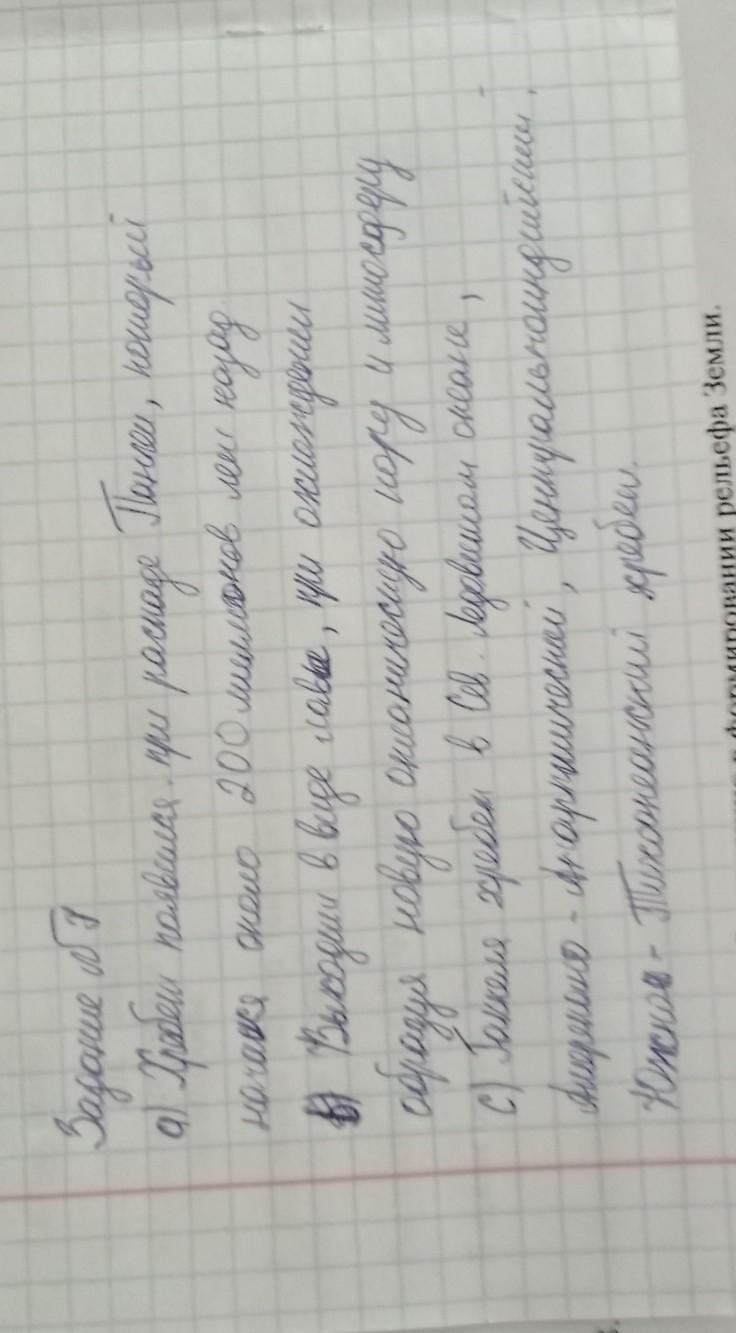 Задание №8
а) Хребет появился при распаде Пангеи, который
начался около 200 миллионов лет назад
b) Выходит в виде лавы, при охлаждении
образуя новую океаническую кору и литосферу
с) Гаккеля хребет в Сев. Ледовитом океане,
Антарктический, Центральноиндийский,
Южно-Тихоокеанский хребет.
формировании рельефа Земли.